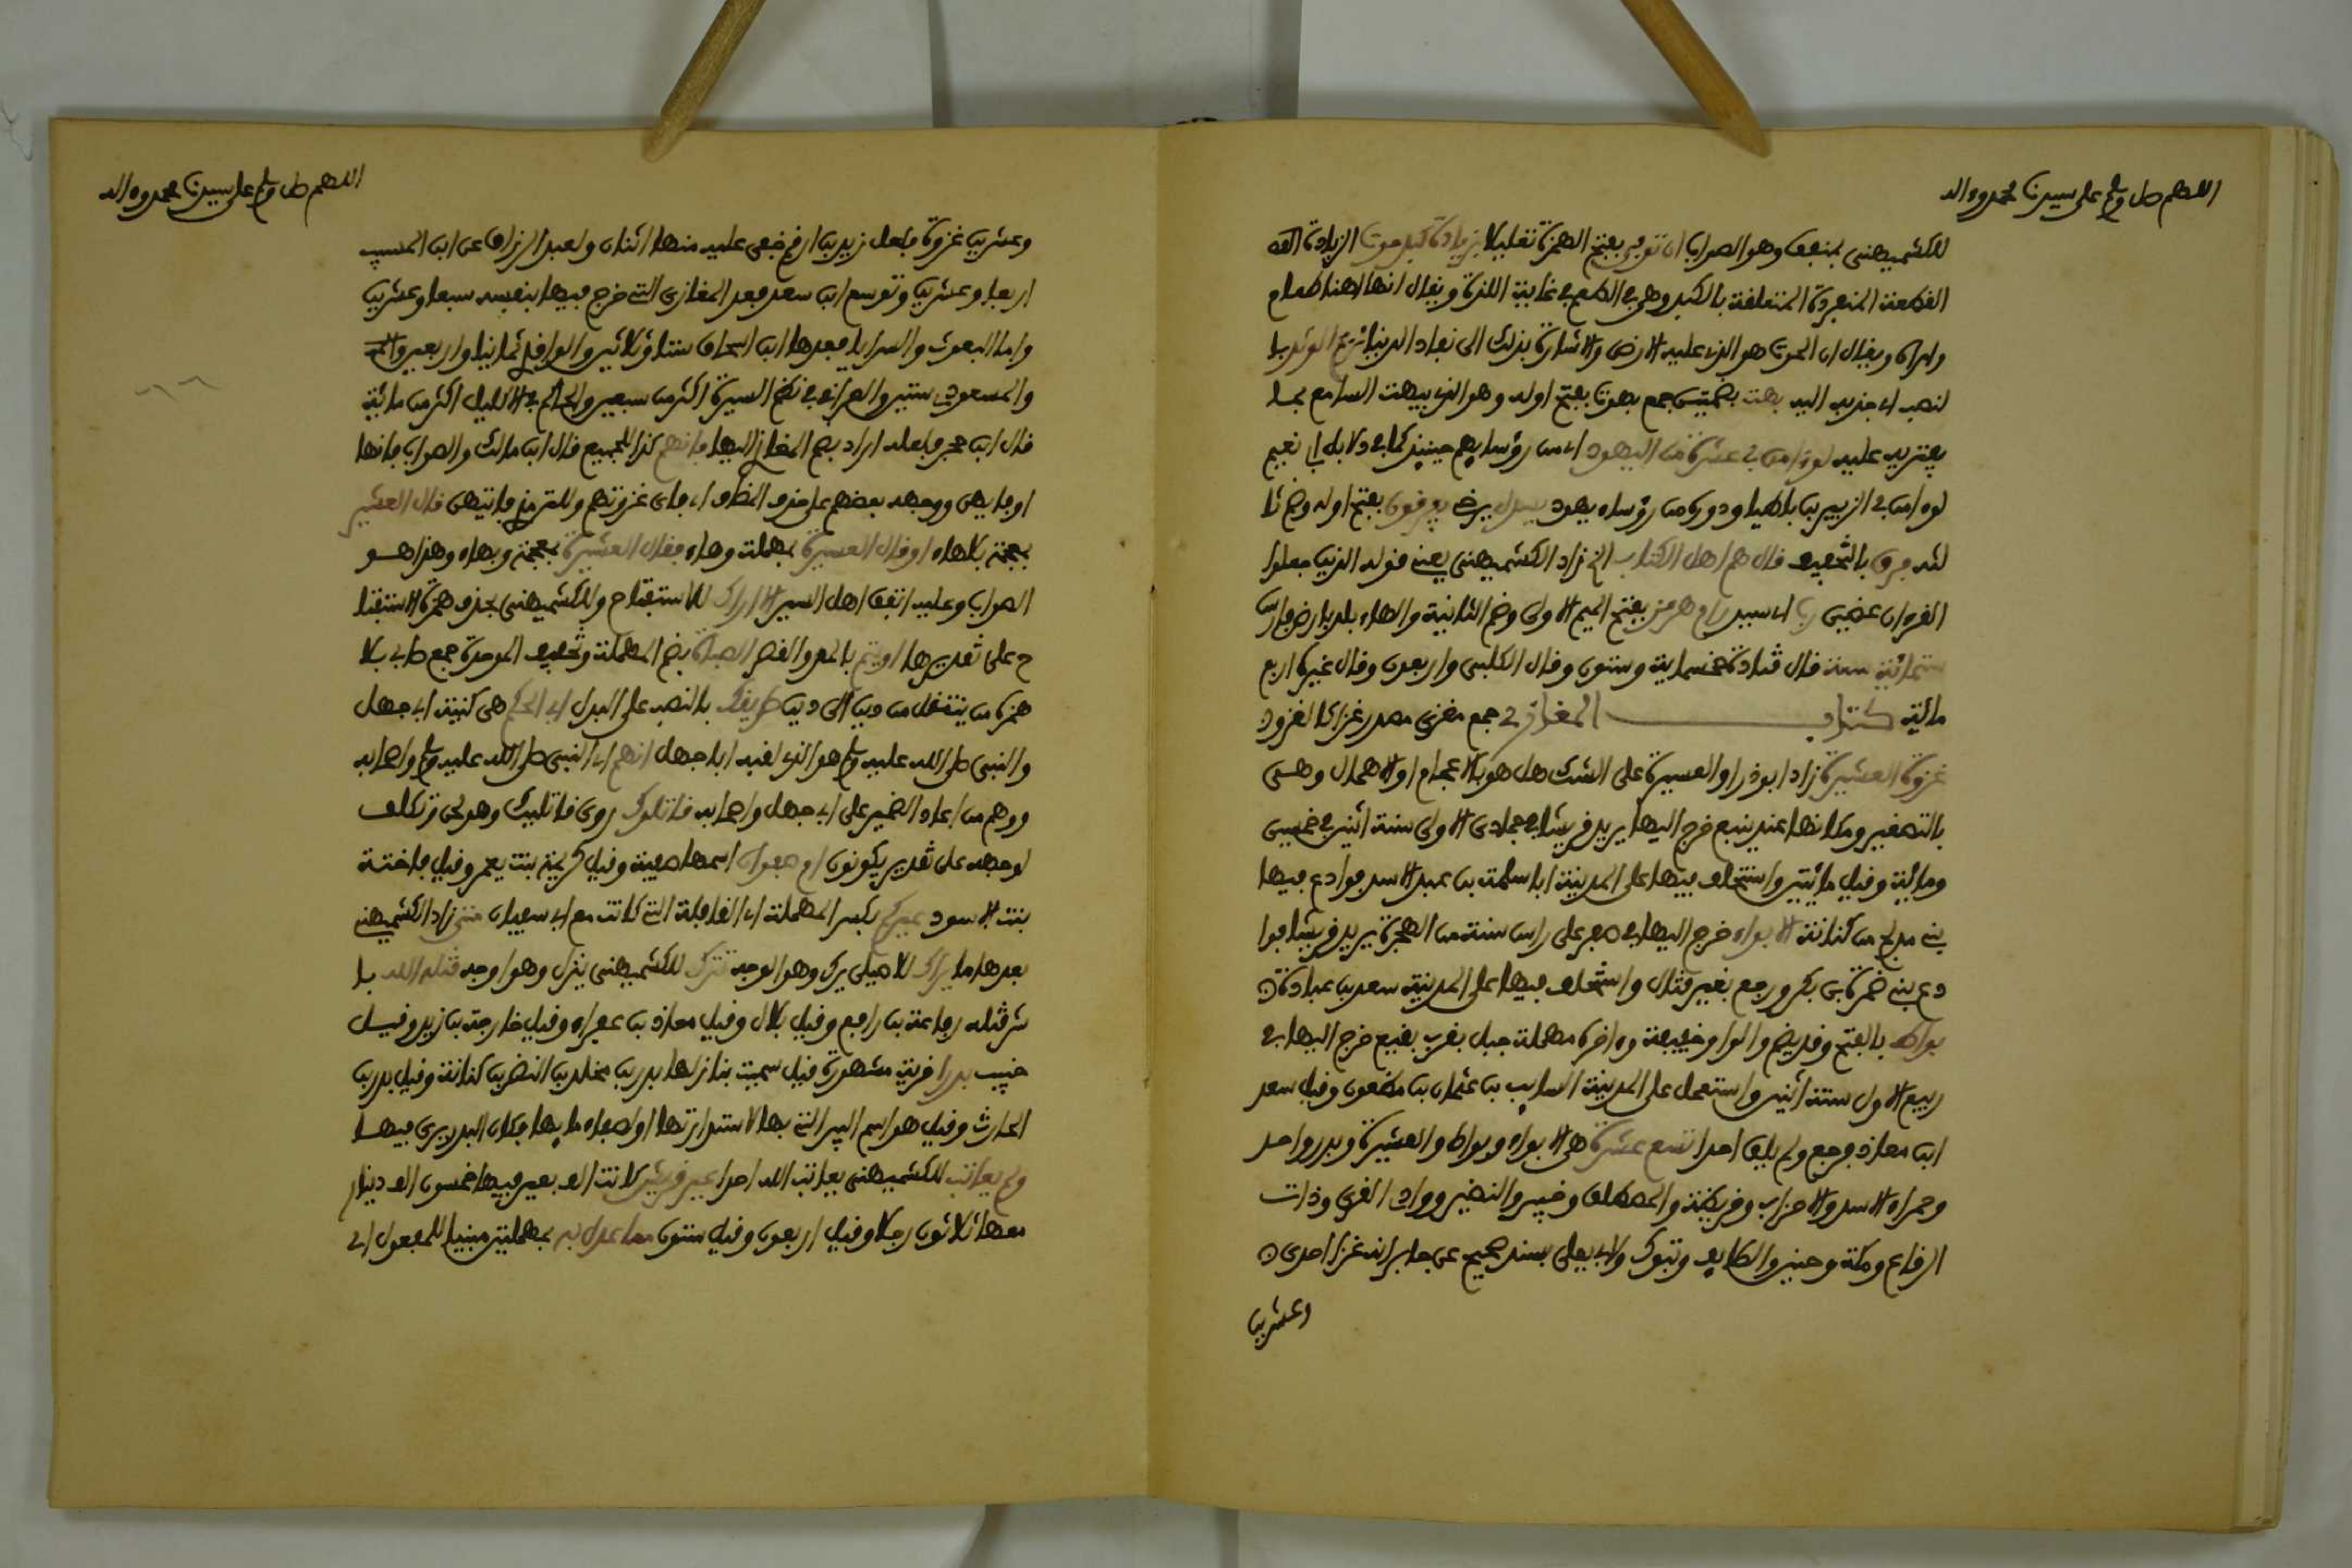 اللهم صل وسلم على سيدنا محمد وءاله
للكشميهني بمنفق وهو الصواب ان توفي بفتح الهمزة تعليلا بزيادة كبد حوت الزيادة القه
القطعة المنفردة المتعلقة بالكبد وهي في الطعم في غاية اللذة ويقال انها اهنا طعام
وامراه ويقال ان الحوت هو الذي عليه الارض والاشارة بذلك الى نفاد الدنيا نزع الولد با
لنصب اي جذبه اليه بهت بضمتين جمع بهوت بفتح اوله وهو الذي يبهت السامع بما
يفتريه عليه لو ءامن بي عشرة من اليهود اي من رؤسايهم حينيذ كما في دلايل ابي نعيم
لو ءامن بي الزبير بن باطيا ودوره من رؤساء يهود يسدل يرخي يفرقون بفتح اوله وضم ثا
لثه فرق بالتخفيف قال هم اهل الكتاب الخ زاد الكشميهني يعني قوله الذين جعلوا
القرءان عضين رب اي سيد رام هرمز بفتح الميم الاولى وضم الثانية والهاء بلد بارض فارس
ستمائة سنة قال قتادة خمسماية وستون وقال الكلبي واربعون وقال غيره اربع
مائة كتاب المغازي جمع مغزى مصدر غزا كالغزو
غزوة العشيرة زاد ابو ذر او العسيرة على الشك هل هو بالاعجام او الاهمال وهي
بالتصغير ومكانها عند ينبع خرج اليها يريد قريشا في جمادى الاولى سنة اثنين في خمسين
ومائة وقيل مائتين واستخلف فيها على المدينة ابا سلمة بن عبد الاسد فوادع فيها
بني مدلج من كنانة الابواء خرج اليها في صفر على راس سنة من الهجرة يريد قريشا فوا
دع بني ضمرة بن بكر ورجع بغير قتال واستخلف فيها على المدينة سعد بن عبادة
بواط بالفتح وقد يضم والواو خفيفة وءاخره مهملة جبل بقرب ينبع خرج اليها في
ربيع الاول سنة اثنين واستعمل على المدينة السايب بن عثمان بن مظعون وقيل سعد
ابن معاذ فرجع ولم يلق احدا تسع عشرة هي الابواء وبواط والعشيرة وبدر واحد
وحمراء الاسد والاحزاب وقريظة والمصطلق وخيبر والنضير ووادي القرى وذات
الرقاع ومكة وحنين والطايف وتبوك ولابي يعلى بسند صحيح عن جابر انه غزا احدى
وعشرين
اللهم صل وسلم على سيدنا محمد وءاله
وعشرين غزوة فلعل زيد بن ارقم خفي عليه منها اثنان ولعبد الرزاق عن ابن المسيب
اربعا وعشرين وتوسع ابن سعد فعد المغازي التي خرج فيها بنفسه سبعا وعشرين
واما البعوث والسرايا فعدها ابن اسحاق ستا وثلاثين والواقدي ثمانيا واربعين
والمسعودي ستين والعراقي في نظم السيرة اكثر من سبعين والحاكم في الاكليل اكثر من مائة
قال ابن حجر فلعله اراد بضم المغازي اليها فايهم كذا للجميع قال ابن مالك والصواب فايها
او فايهن ووجهه بعضهم على حذف المضاف اي فاي غزوتهم وللترمذي فايتهن قال العشير
بمعجمة بلا هاء او قال العسيرة بمهملة وهاء فقال العشيرة بمعجمة وبهاء وهذا هو
الصواب وعليه اتفق اهل السير الا اراك للاستفتاح وللكشميهني بحذف همزة الاستفتا
ح على تقديرها اويتم بالمد والقصر الصباة بضم المهملة وتخفيف الموحدة جمع صابي بلا
همزة من ينتقل من دين الى دين طريقك بالنصب على البدل ابي الحكم هي كنية ابي جهل
والنبي صلى الله عليه وسلم هو الذي لقبه ابا جهل انهم اي النبي صلى الله عليه وسلم واصحابه
ووهم من اعاد الضمير على ابي جهل واصحابه قاتلوك روي قاتليك وهو لحن تكلف
لوجهه على تقدير يكونون ام صفوان اسمها صفية وقيل كريمة بنت يعمر وقيل فاختة
بنت الاسود عيركم بكسر المهملة اي القافلة التي كانت مع ابي سفيان متى زاد الكشميهني
بعدها ما يراك للاصيلي يرك وهو الوجه تترك للكشميهني ينزل وهو اوجه قتله الله با
شر قتله رفاعة بن رافع وقيل بلال وقيل معاذ بن عفراء وقيل خارجة بن زيد وقيل
خبيب بدرا قرية مشهورة قيل سميت بنازلها بدر بن مخلد بن النضر بن كنانة وقيل بدر بن
الحارث وقيل هو اسم البير التي بها لاستدارتها او لصفاء مايها فكان البدر يرى فيها
ولم يعاتب للكشميهني يعاتب الله احدا عير قريش كانت الف بعير فيها خمسون الف دينار
معها ثلاثون رجلا وقيل اربعون وقيل ستون مما عدل به بمهملتين مبنيا للمفعول اي